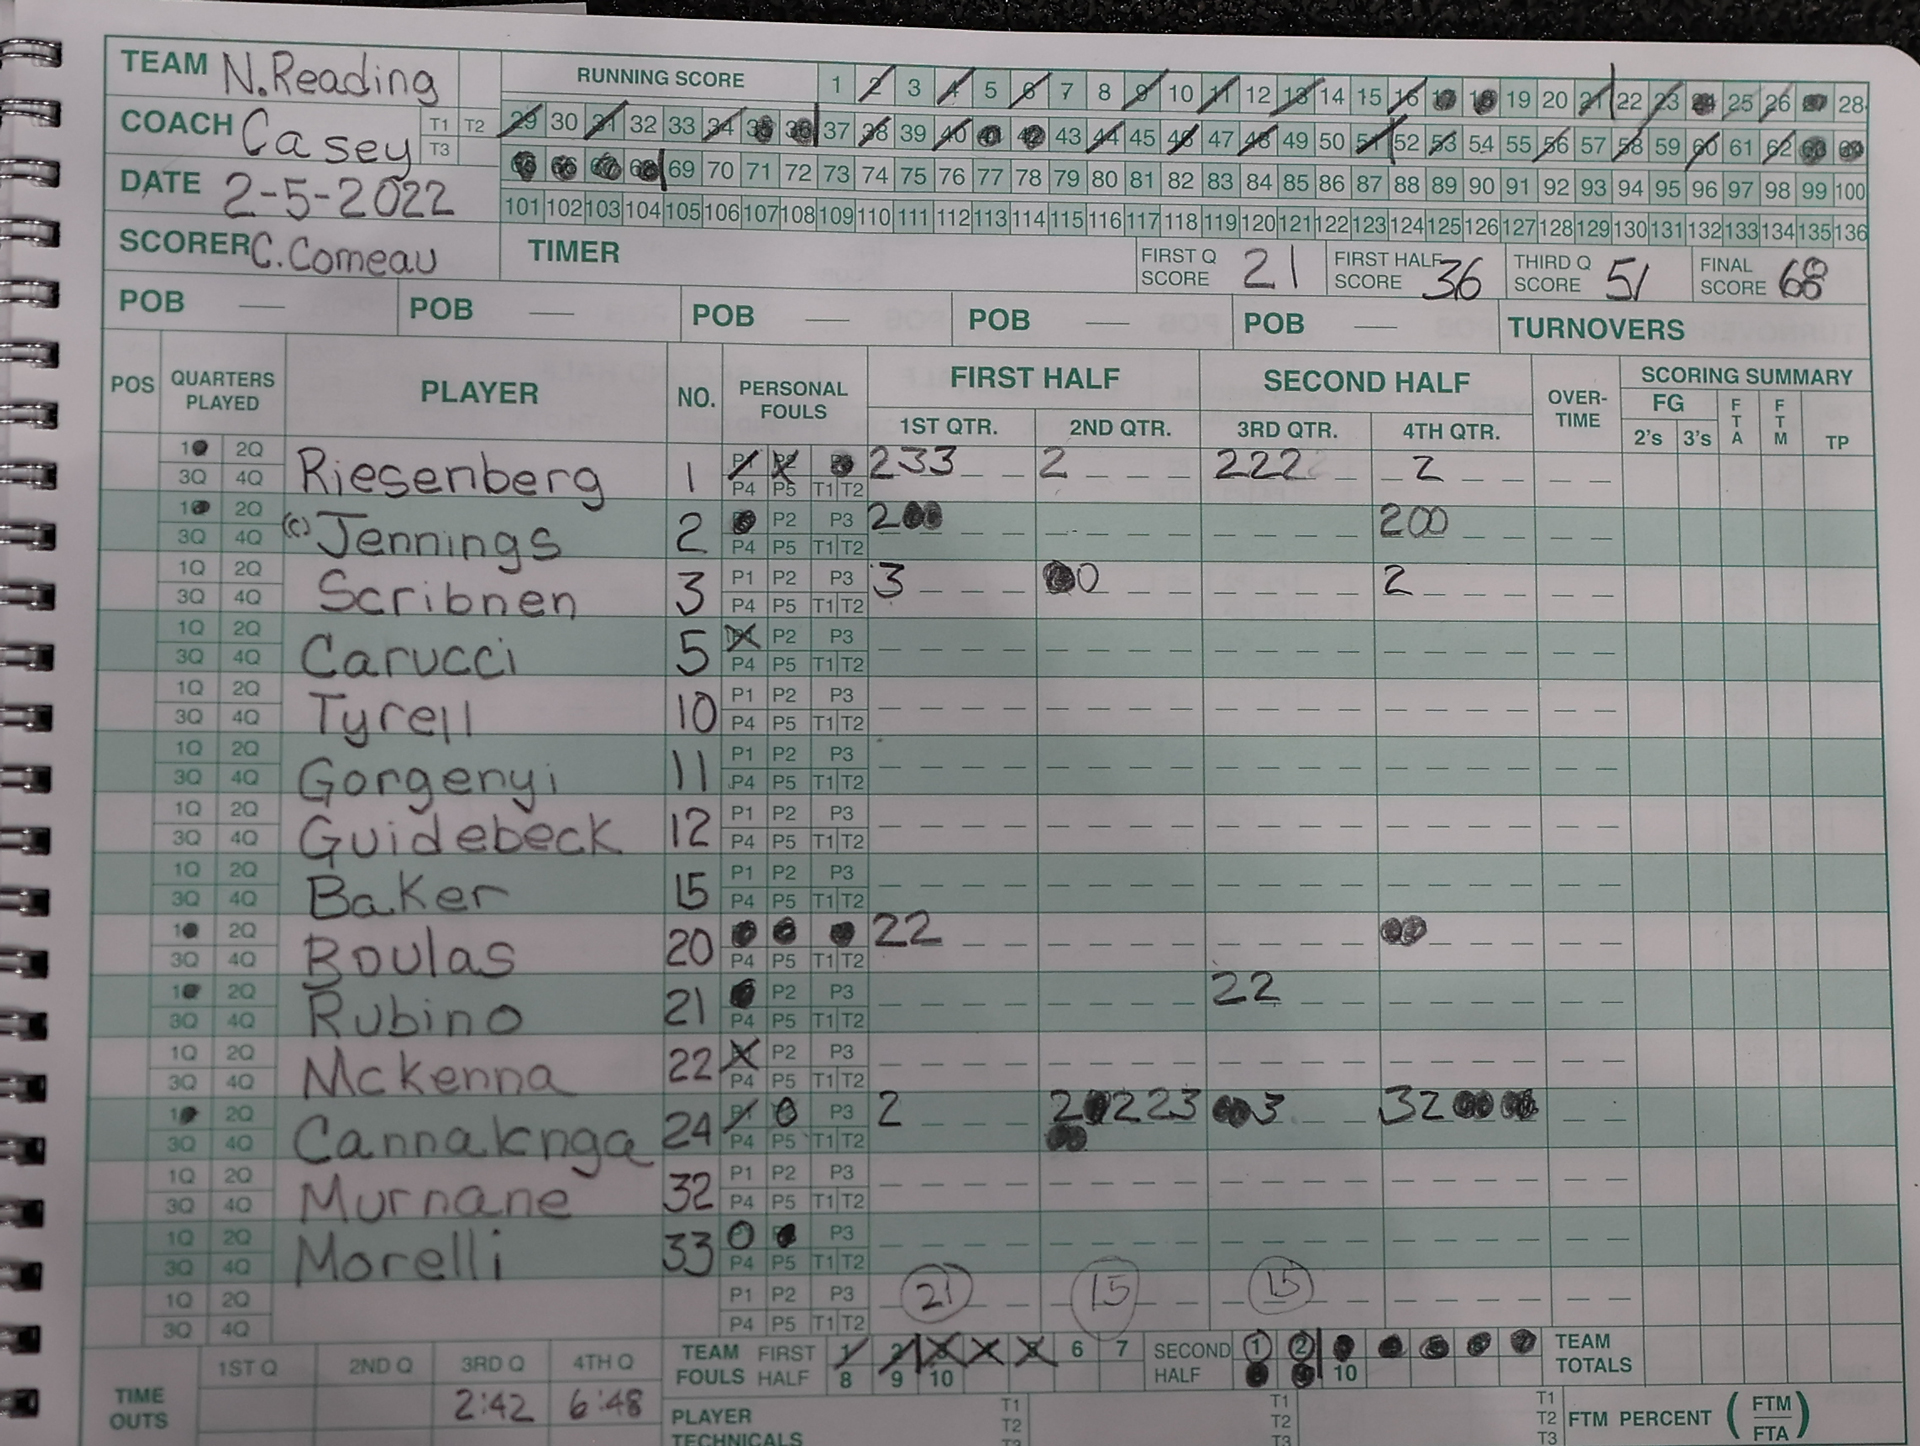 TEAM N.Reading
COACH Casey T1 T2 T3
DATE 2-5-2022
SCORER C. Comeau
RUNNING SCORE 1 2 3 4 5 6 7 8 9 10 11 12 13 14 15 16 17 18 19 20 21 22 23 24 25 26 27 28
29 30 31 32 33 34 35 36 37 38 39 40 41 42 43 44 45 46 47 48 49 50 51 52 53 54 55 56 57 58 59 60 61 62 63 64
65 66 67 68 69 70 71 72 73 74 75 76 77 78 79 80 81 82 83 84 85 86 87 88 89 90 91 92 93 94 95 96 97 98 99 100
101 102 103 104 105 106 107 108 109 110 111 112 113 114 115 116 117 118 119 120 121 122 123 124 125 126 127 128 129 130 131 132 133 134 135 136
TIMER FIRST Q SCORE 21 FIRST HALF SCORE 36 THIRD Q SCORE 51 FINAL SCORE 68
POB — POB — POB — POB — POB — TURNOVERS
POS QUARTERS PLAYED PLAYER NO. PERSONAL FOULS FIRST HALF SECOND HALF OVER-TIME SCORING SUMMARY
1ST QTR. 2ND QTR. 3RD QTR. 4TH QTR. FG 2's 3's FTA FTM TP
1 2Q 3Q 4Q Riesenberg 1 P4 P5 T1 T2 233 2 222 2
1 2Q 3Q 4Q (c) Jennings 2 P2 P3 P4 P5 T1 T2 2 200
1Q 2Q 3Q 4Q Scribnen 3 P1 P2 P3 P4 P5 T1 T2 3 0 2
1Q 2Q 3Q 4Q Carucci 5 P2 P3 P4 P5 T1 T2
1Q 2Q 3Q 4Q Tyrell 10 P1 P2 P3 P4 P5 T1 T2
1Q 2Q 3Q 4Q Gorgenyi 11 P1 P2 P3 P4 P5 T1 T2
1Q 2Q 3Q 4Q Guidebeck 12 P1 P2 P3 P4 P5 T1 T2
1Q 2Q 3Q 4Q Baker 15 P1 P2 P3 P4 P5 T1 T2
1 2Q 3Q 4Q Boulas 20 P4 P5 T1 T2 22
1 2Q 3Q 4Q Rubino 21 P2 P3 P4 P5 T1 T2 22
1Q 2Q 3Q 4Q Mckenna 22 P2 P3 P4 P5 T1 T2
1 2Q 3Q 4Q Cannaknga 24 P1 P3 P4 P5 T1 T2 2 2 223 3 32
1Q 2Q 3Q 4Q Murnane 32 P1 P2 P3 P4 P5 T1 T2
1Q 2Q 3Q 4Q Morelli 33 P3 P4 P5 T1 T2
1Q 2Q 3Q 4Q P1 P2 P3 P4 P5 T1 T2 21 15 15
TIME OUTS 1ST Q 2ND Q 3RD Q 4TH Q
2:42 6:48
TEAM FOULS FIRST HALF 1 2 3 6 7 8 9 10 SECOND HALF 1 2 7 10 TEAM TOTALS
PLAYER TECHNICALS T1 T2 T1 T2 T3 T1 T2 T3 FTM PERCENT (FTM FTA)